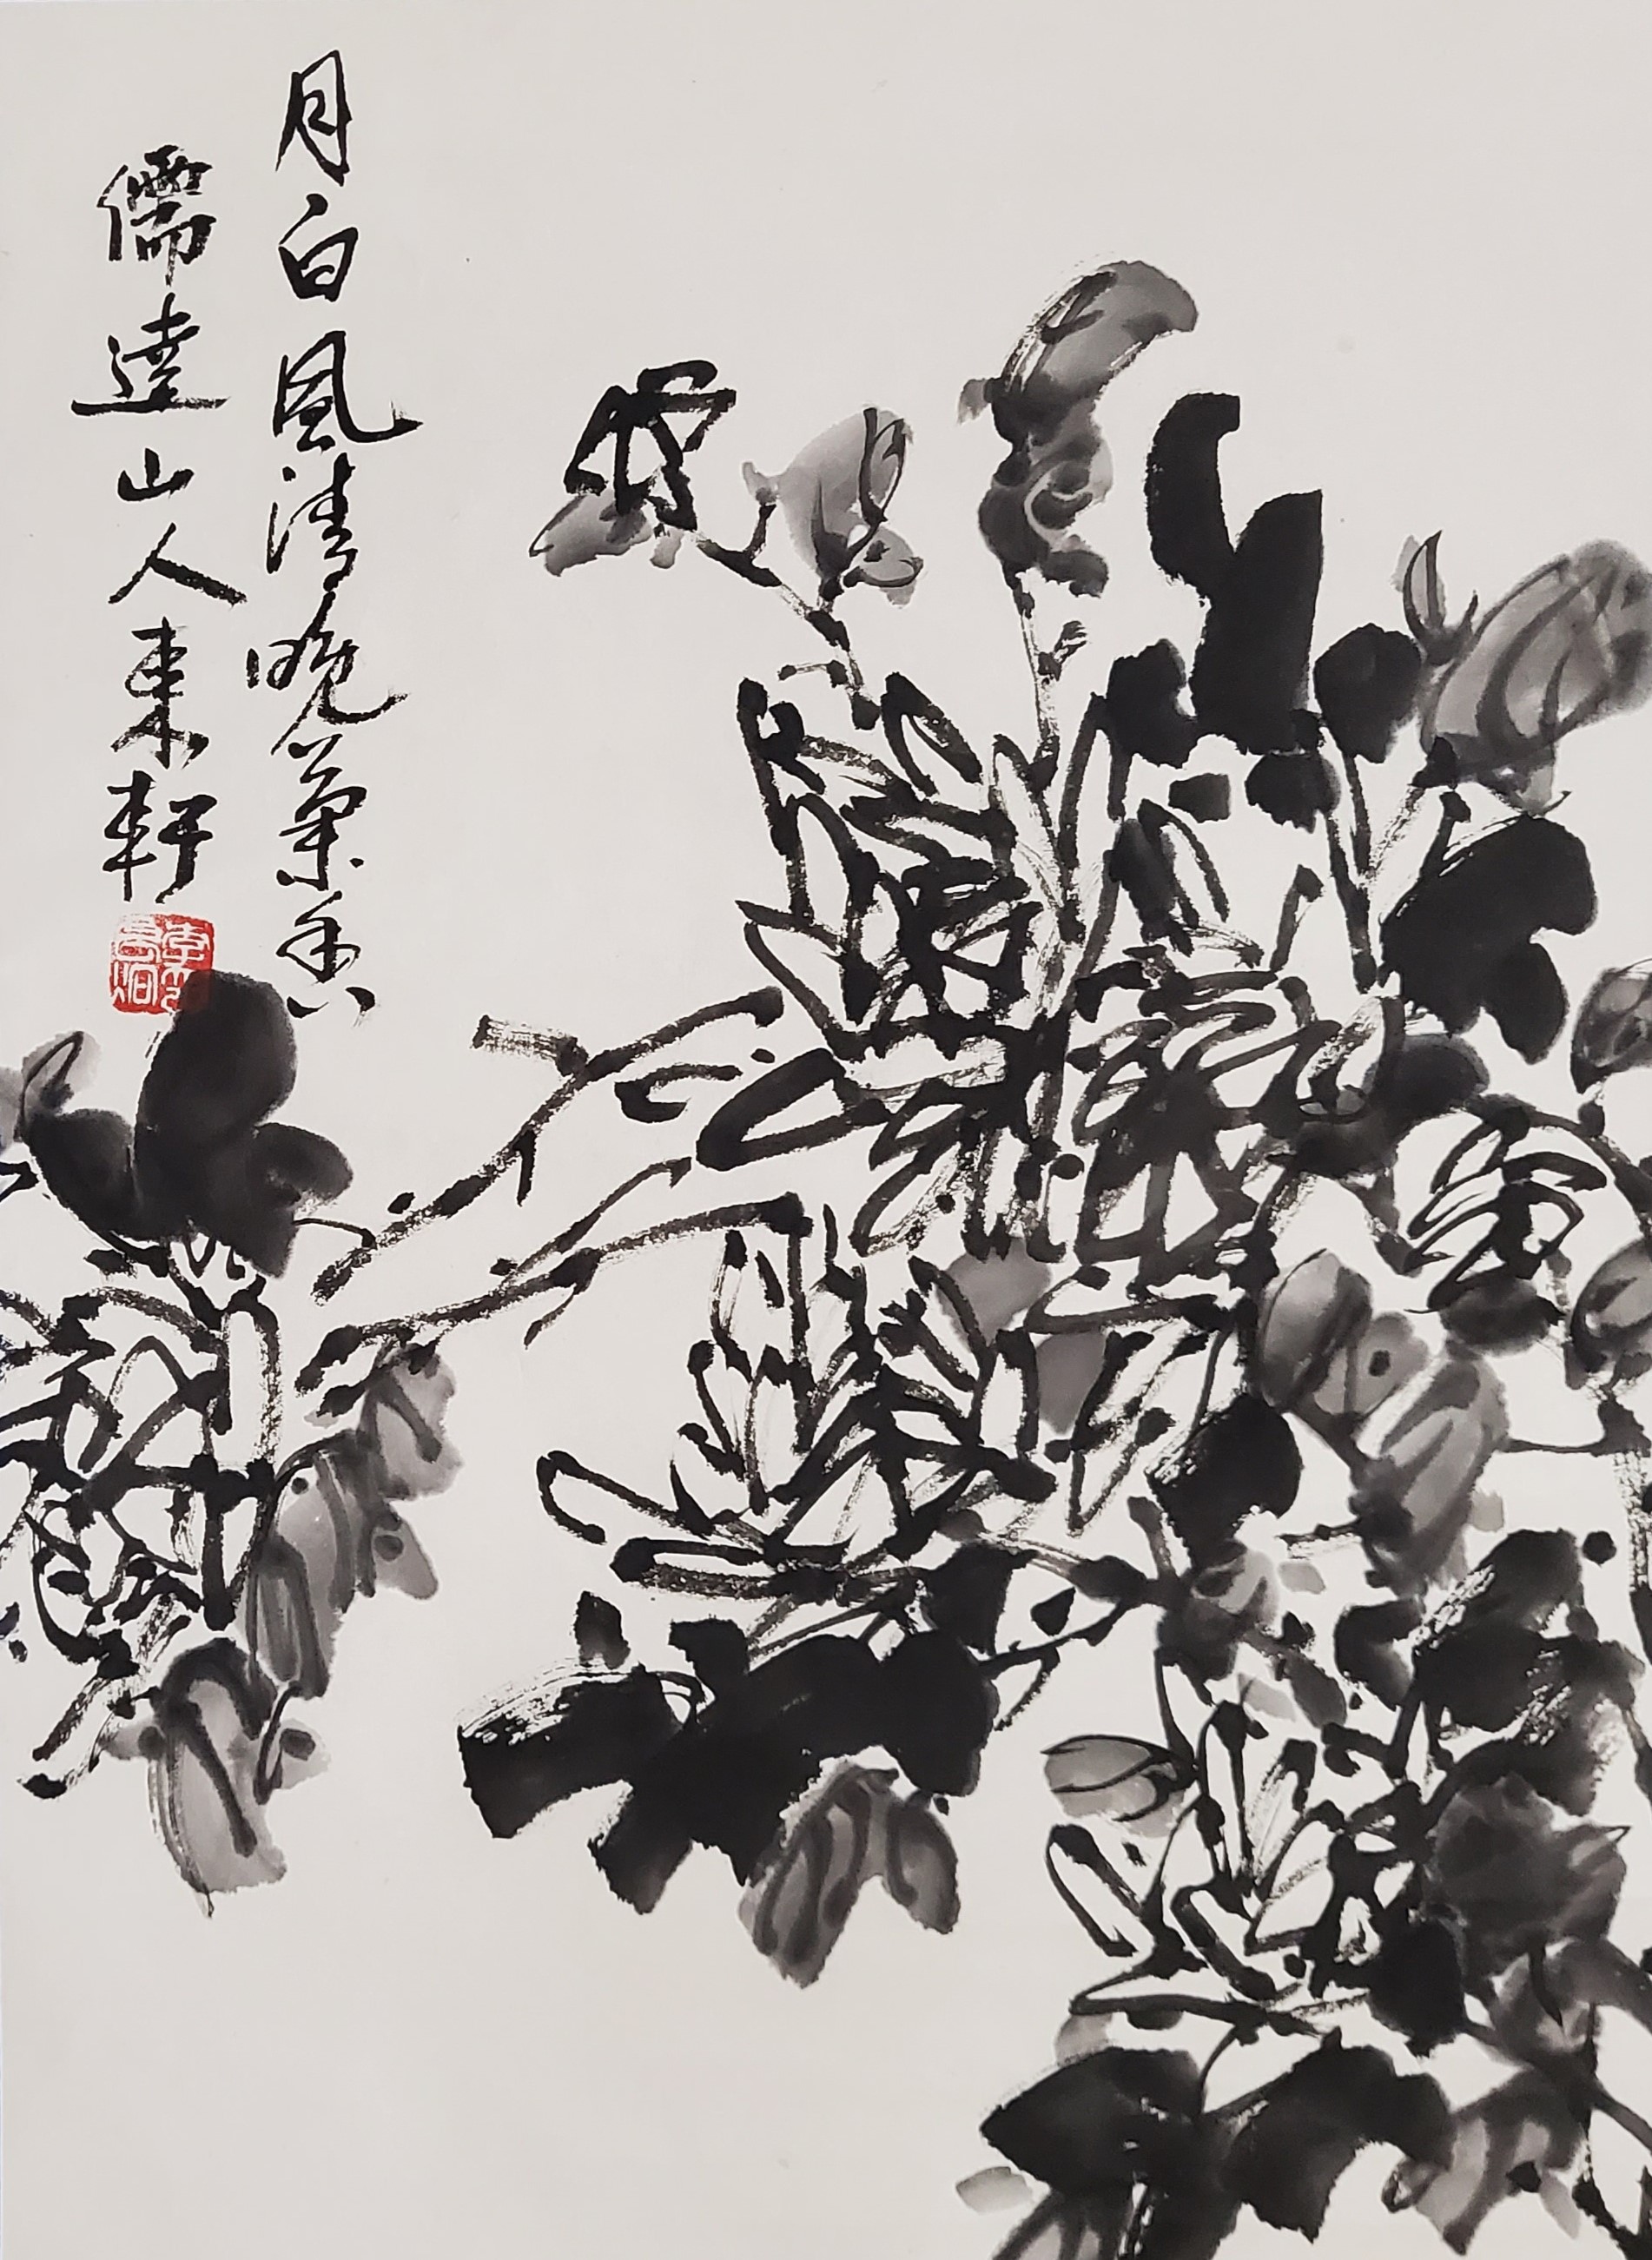 月白風清晚菊香
儒達山人東軒